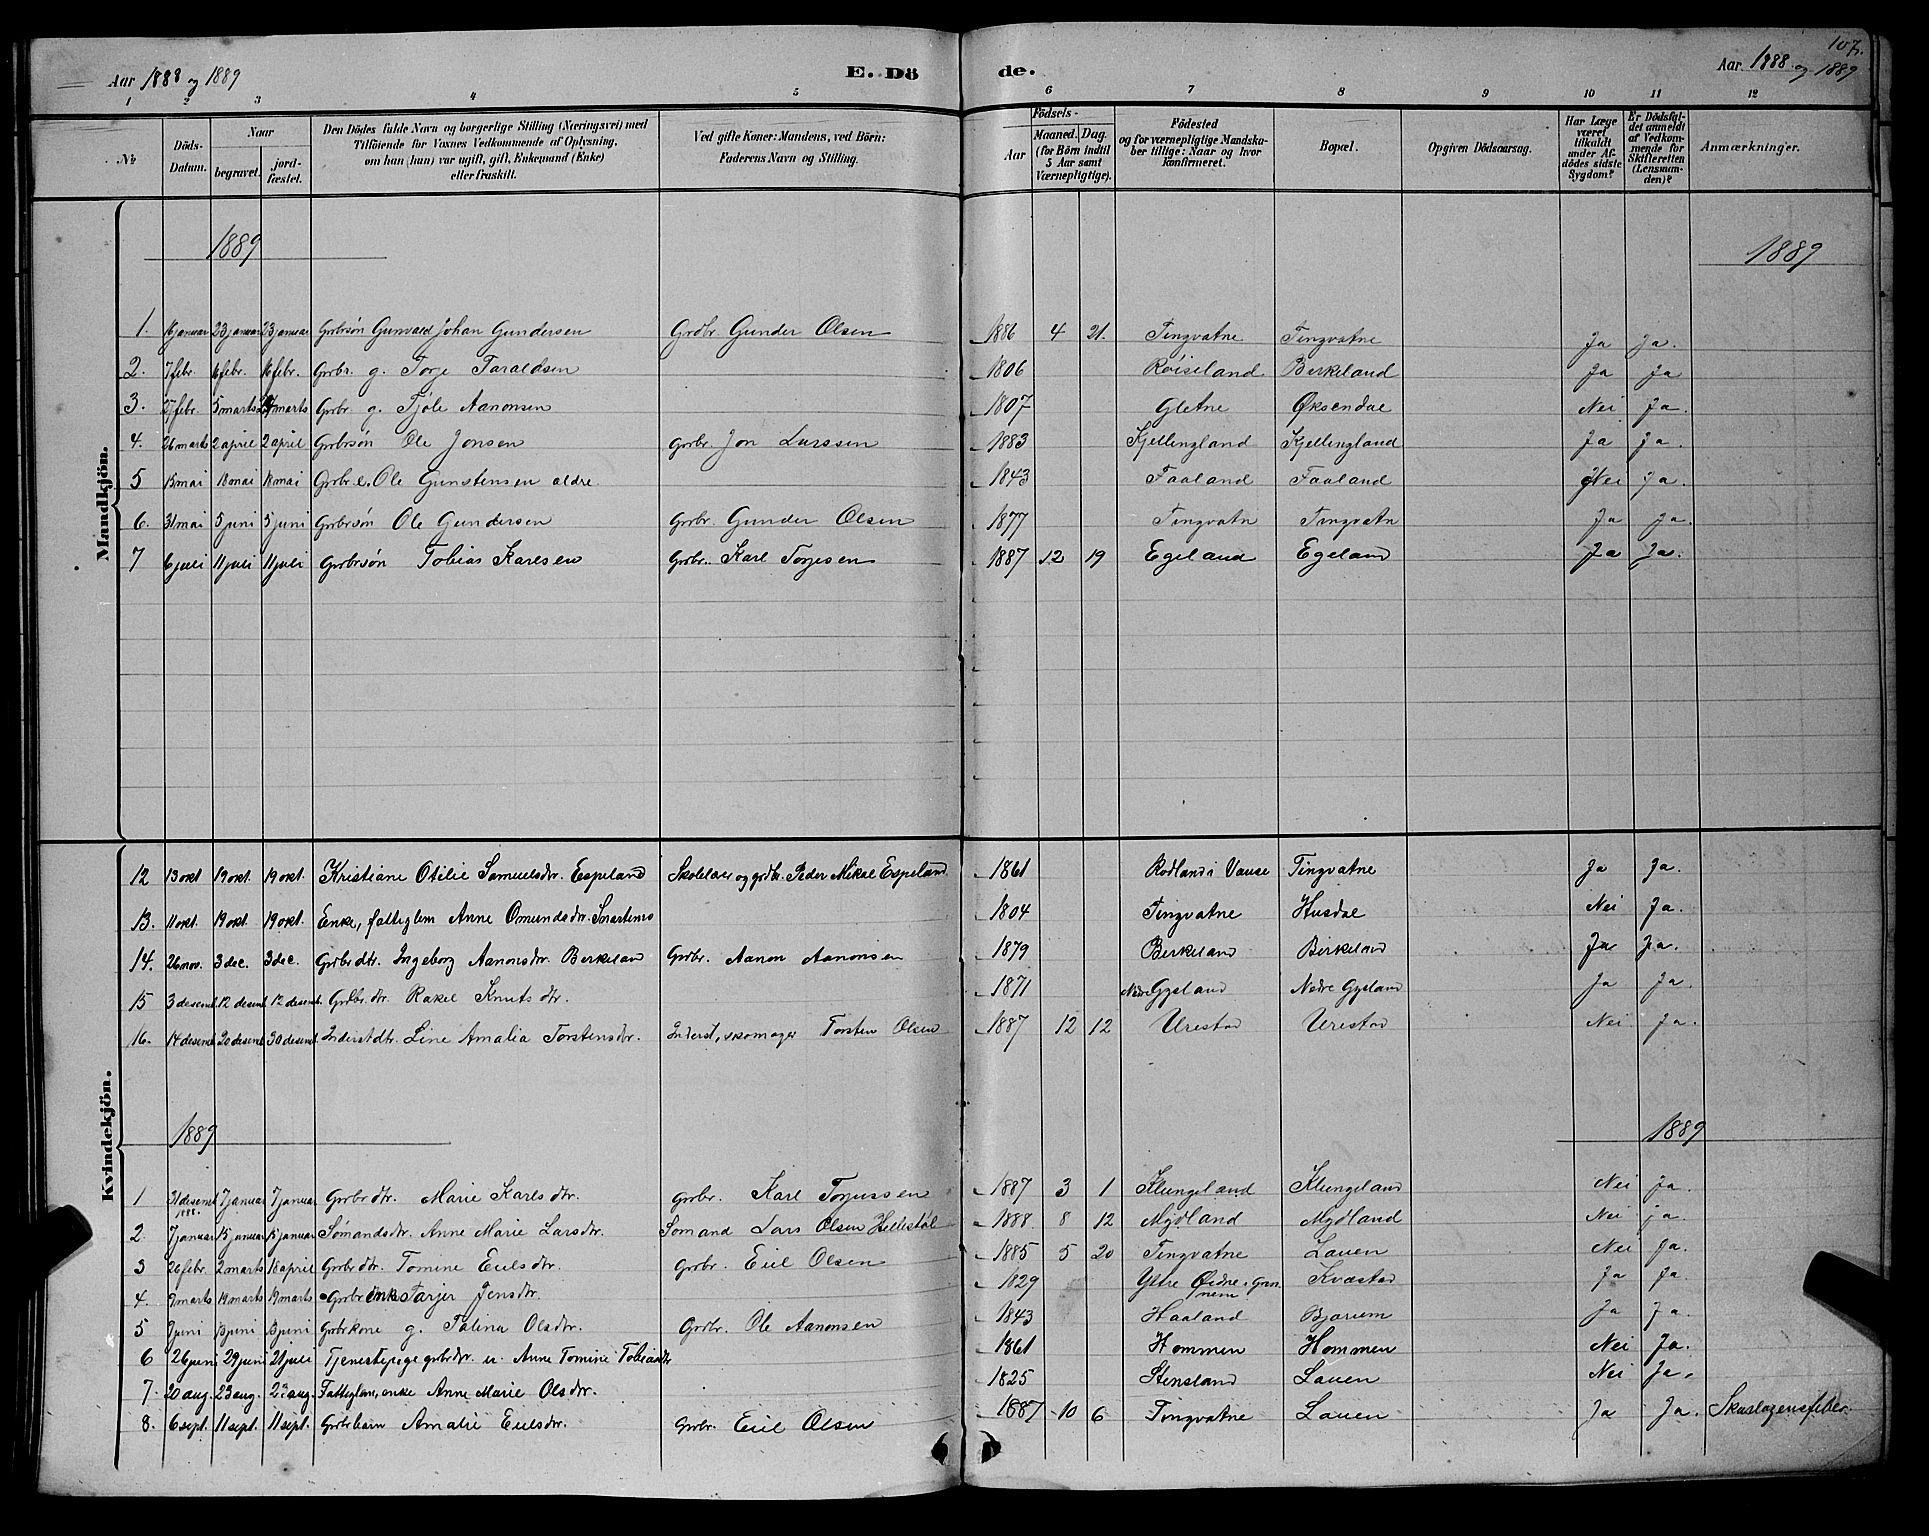 107.
Aar 1888 og 1889 E. Dö de. Aar 1888 og 1889
1 2 3 4 5 6 7 8 9 10 11 12
No
Döds-Datum.
Naar
begravet.
jord-fæstet.
Den Dödes fulde Navn og borgerlige Stilling (Næringsvei) med
Tilföiende for Voxnes Vedkommende af Oplysning,
om han (hun) var ugift, gift, Enkemand (Enke)
eller fraskilt.
Ved gifte Koner: Mandens, ved Börn:
Faderens Navn og Stilling.
Födsels-
Aar
Maaned. Dag.
(for Börn indtil
5 Aar samt
Værnepligtige).
Födested
og for værnepligtige Mandska-
ber tillige: Naar og hvor
konfirmeret.
Bopæl.
Opgiven Dödsaarsag.
Har Læge
været
tilkaldt
under Af-
dödes sidste
Sygdom?
Er Dödsfal-
det anmeldt
af Vedkom-
mende for
Skifteretten
(Lensman-
den)?
Anmærkninger.
Mandkjön.
1889 1889
1. 16 januar 23 januar 23 januar Grbrsøn Gunvald Johan Gundersen Grdbr. Gunder Olsen 1886 4 21. Tingvatne Tingvatne Ja Ja.
2. 7 febr. 16 febr. 16 febr. Grbr. g. Torje Taraldsen 1806 Røiseland Birkeland Ja Ja
3. 27 febr. 5 marts marts Grbr. g. Tjøle Aanonsen 1807 Gletne Øksendal Nei Ja.
4. 26 marts 2 april 2 april Grbrsøn Ole Jonsen Grbr. Jon Larssen 1883 Kjellingland Kjellingland Ja Ja.
5 13 mai 18 mai 18 mai Grbr e. Ole Gunstensen ældre 1843 Faaland Faaland Nei Ja.
6. 31 mai 5 juni 5 juni Grbrsøn Ole Gundersen Grbr. Gunder Olsen 1877 Tingvatn Tingvatn Ja Ja.
7 6 juli 11 juli 11 juli Grbrsøn Tobias Karlsen Grbr. Karl Torjesen 1887 12 19 Egeland Egeland Ja Ja.
Kvindekjön.
12 13 okt 19 okt. 19 okt. Kristiane Otilie Samuelsdtr. Espeland Skolelærer og grdbr. Peder Mikal Espeland 1861 Rødland i Vanse Tingvatne Ja Ja.
13. 11 okt. 19 okt. 19 okt. Enke, fattiglem Anne Omundsdtr. 1804 Tingvatne Husdal Nei Ja.
14. 26 nov. 3 dec. 3 dec. Grbrdtr. Ingeborg Aanonsdtr. Birkeland Grdbr. Aanon Aanonsen 1879 Birkeland Birkeland Ja Ja.
15 3 desemb 12 desemb 12 desemb. Grdbr. dtr. Rakel Knutsdtr. 1871 Nedre Gysland Nedre Gysland Ja Ja.
16. 14 desemb 20 desemb 30 desemb. Inderstdtr. Line Amalia Torstensdtr. Inderst, skomager Torsten Olsen 1887 12 12 Urestad Urestad Nei Ja.
1889 1889
1 31 desemb 1888. 7 januar 7 januar Grbrdtr. Marie Karlsdtr. Grbr. Karl Torjussen 1887 3 1 Klungeland Klungeland Nei Ja.
2. 7 januar 15 januar 15 januar Sømandsdtr. Anne Marie Larsdtr. Sømand Lars Olsen Hellestøl 1888 8 12 Mydland Mydland Nei ja.
3 26 febr. 2 marts 18 april Grbrdtr. Tomine Eielsdtr. Grbr. Eiel Olsen 1885 5 20 Tingvatne Lauen Nei Ja.
4. 9 marts 19 marts 19 marts Grbr enke Tarjer Jensdtr. 1829 Ytre Øidne i Grin nem Kvæstad Ja Ja.
5 7 juni 13 juni 13 juni Grbrkone g. Talina Olsdtr. Grdbr. Ole Aanonsen 1843 Haaland Bjarum Ja Ja.
6 26 juni 29 juni 21 juli Tjenestepige grbrdtr. u. Anne Tomine Tobiasdtr 1861 Hommen Hommen Nei Ja.
7. 20 aug. 23 aug. 23 aug. Fattiglem, enke Anne Marie Olsdtr. 1825 Stensland Lauen Nei Ja.
8. 6 sept. 11 sept. 11 sept. Grbrbarn Amalie Eielsdtr. Grbr. Eiel Olsen 1887 10 6 Tingvatne Lauen Ja Ja. Skarlagensfeber.